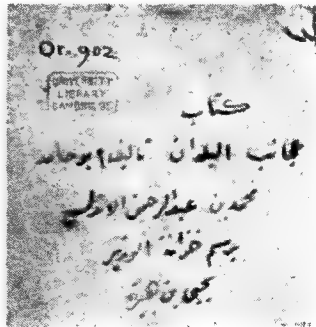 Or. 902
UNIVERSITY
LIBRARY
CAMBRIDGE
كتاب
عجائب البلدان تاليف ابو حامد
محمد بن عبد الرحمن الاندلسي
برسم خزانة الوزير
يحيى بن هبيرة